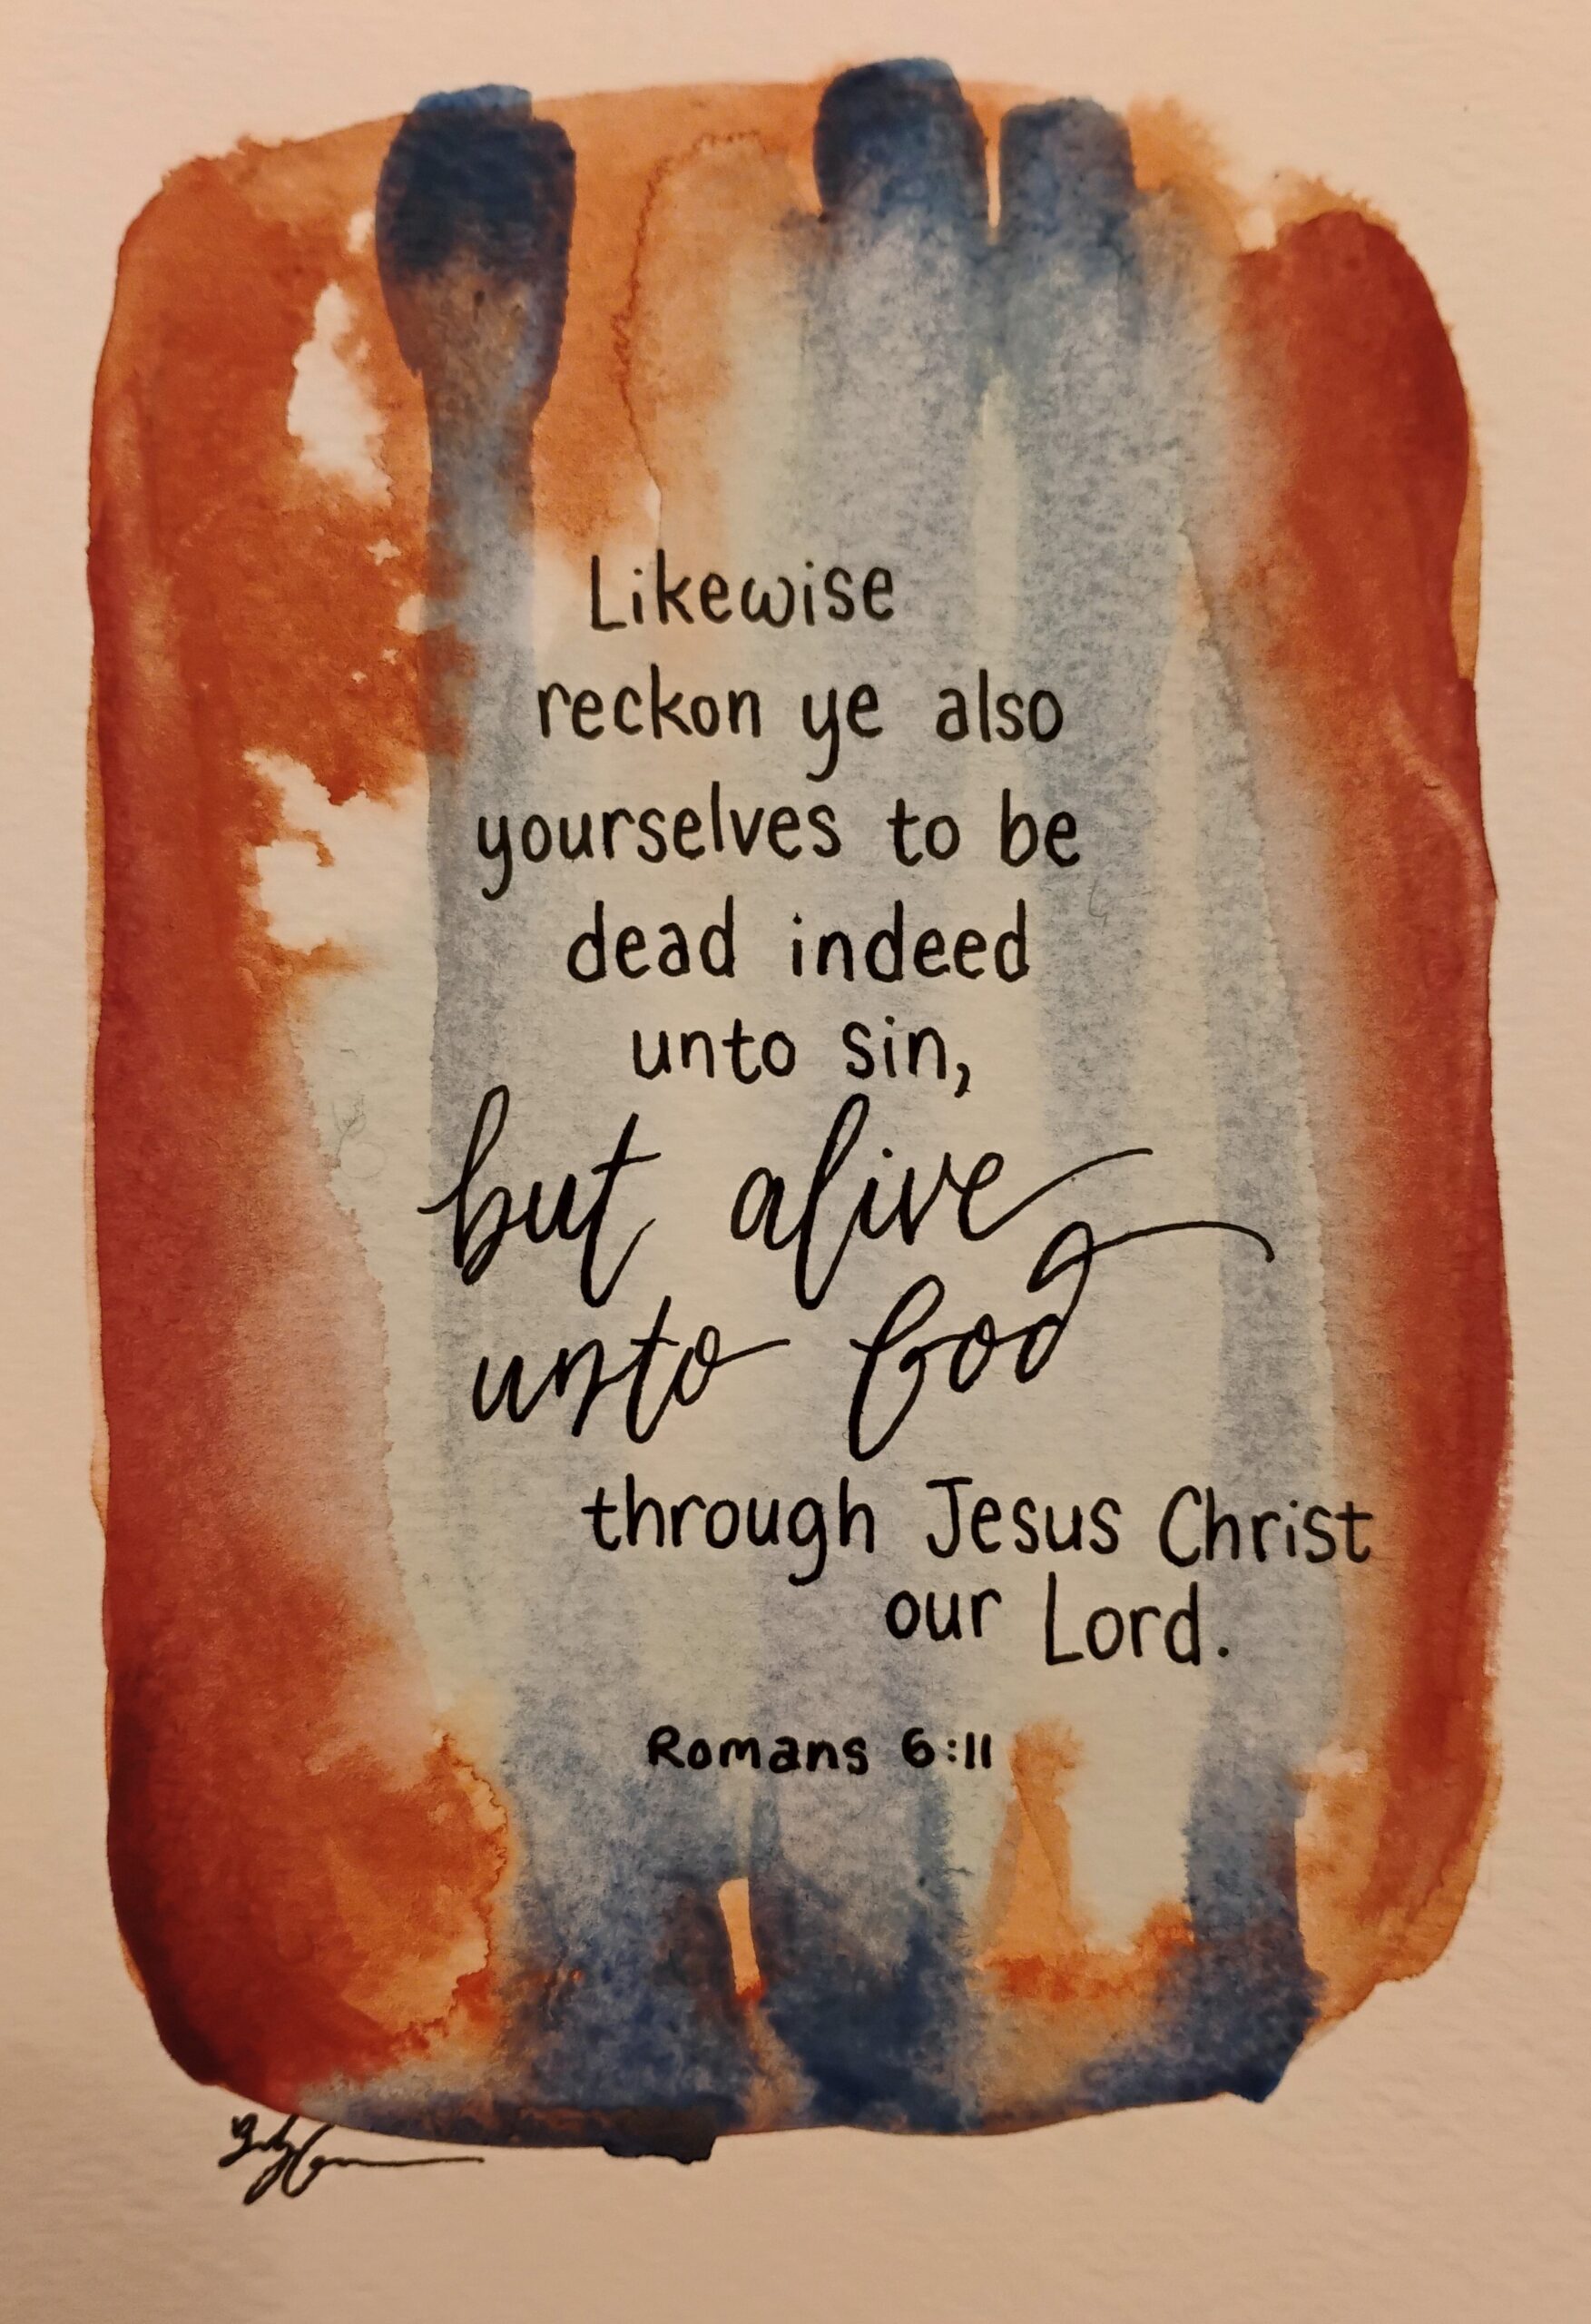 Likewise
reckon ye also
yourselves to be
dead indeed
unto sin,
but alive
unto God
through Jesus Christ
our Lord.
Romans 6:11